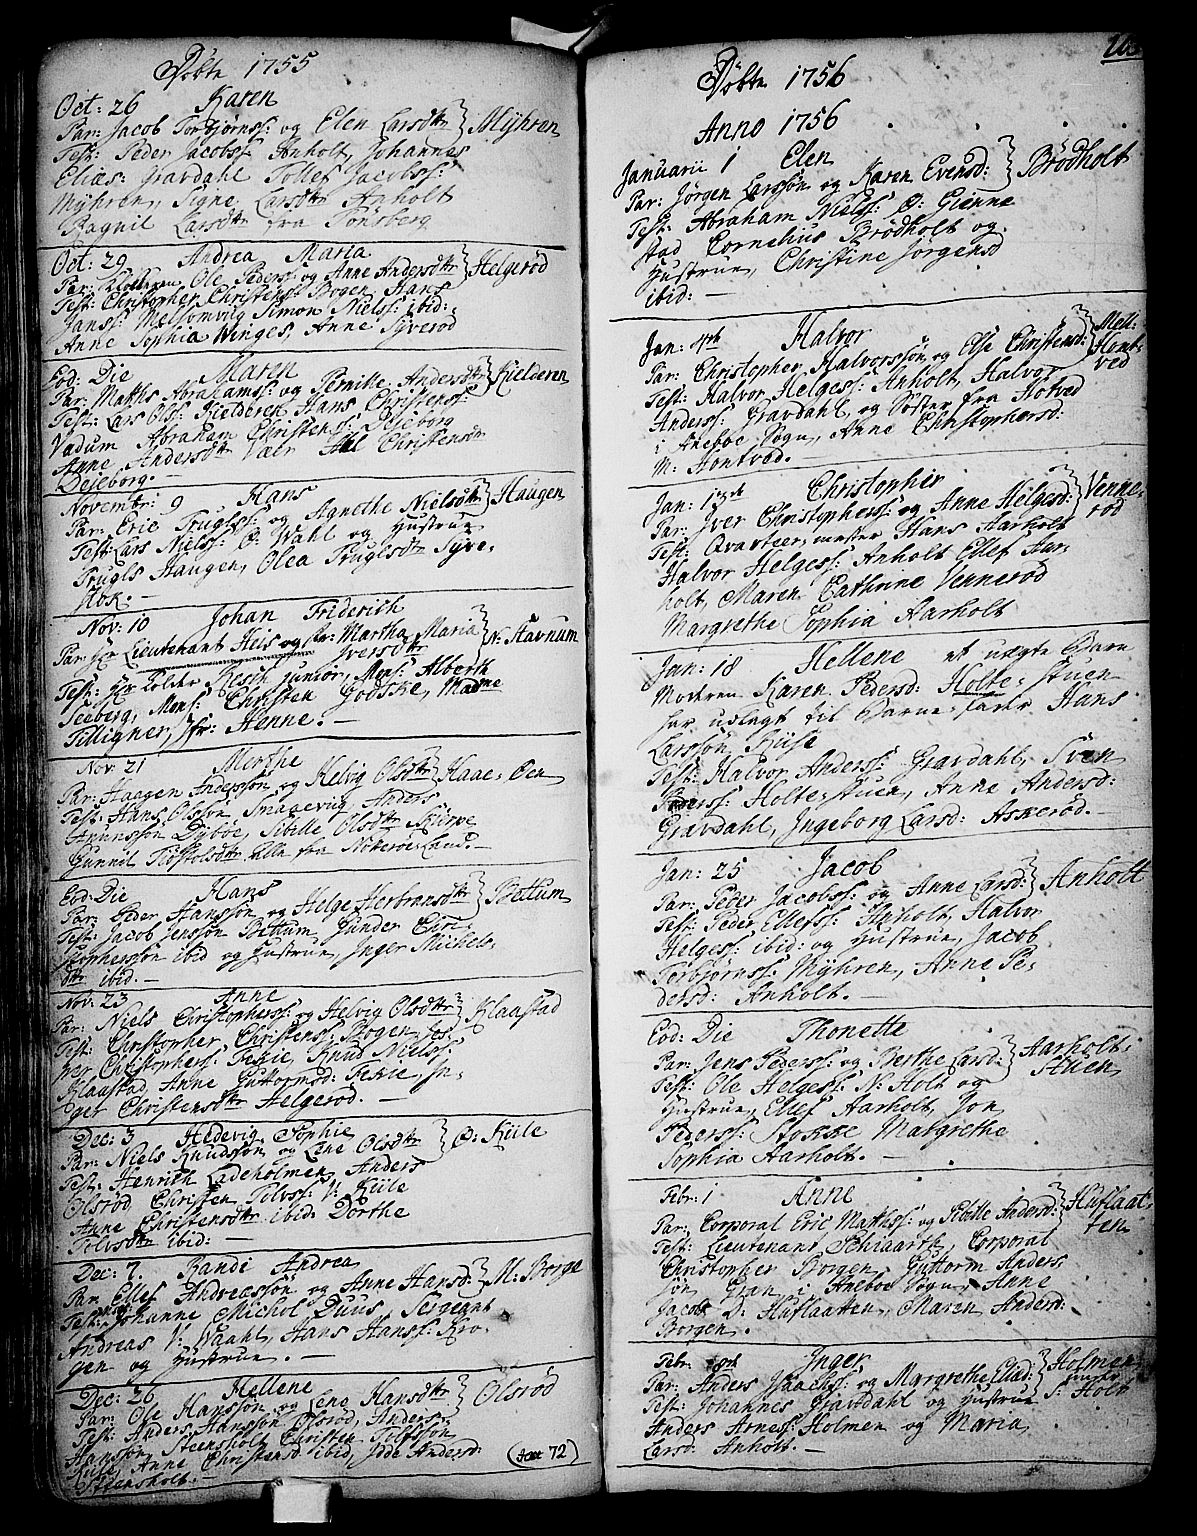 Døbte 1755
Oct: 26 Karen
Par: Jacob Torbjørns: og Elen Larsdtr } Mÿhren
Test: Peder Jacobs: Anholt, Johannes
Elias: Gravdahl Tollef Jacobs:
Mÿhren, Signe Larsdtr Anholt
Ragnil Larsdtr fra Tønsberg
Oct: 29 Andrea Maria
Par: Ole Peders: og Anne Andersdtr } Helgerød
Test: Christopher Christens: Bogen, Hans
Jans: Mellomvug Simon Niels: ibid:
Anne Sophia Winges, Anne Syverød
Eod: Die Maren
Par: Matths Abrahams: og Pernille Andersdtr } Kielderen
Test: Lars Ols: Kielderen Hans Christens:
Vadum Abraham Christens: Dejeborg
Anne Andersdtr Vær Christensdtr
Dejeborg. —
Novembr: 9 Hans
Par: Eric Trugls: og Agnethe Nielsdtr } Haugen
Test: Lars Niels: Ø: Wahl og Hustrue
Trugls Haugen, Olea Truglsdtr Syve-
stok. —
Nov: 10 Johan Friderich
Par: Hr Lieutenant Heis og fr: Martha Maria Iversdtr } N: Havnum
Test: Hr Tolder Resch junior, Mons: Alberth
Seeberg, Mons: Christen Godske, Madme
Tilligner, Jfr: Henne. —
Nov: 21 Merthe
Par: Haagen Anderssøn og Helvig Olsdtr } Haae-Øen
Test: Hans Olssøn, Smaaevig, Anders
Amundssøn Dybøe, Sibille Olsdtr Skirve
Gunnil Tiøstolsdtr alle fra Nøterøe Land. —
Eod: Die Hans
Par: Peder Hanssøn og Helge Herbransdtr } Bettum
Test: Jacob Jenssøn Bettum Gunder Chri-
stopherssøn ibid og Hustrue, Inger Michels-
dtr ibid. —
Nov: 23 Anne
Par: Niels Christophers: og Helvig Olsdtr } Klaastad
Test: Christopher Christens: Bogen, Jes-
per Christophers: Fekie, Knud Niels:
Klaastad, Anne Guttormsd: Fekie, In-
ger Christensdtr Helgerød. —
Dec: 3 Hedevig Sophie
Par: Niels Knudssøn og Lene Olsdtr } Ø: Kiile
Test: Henrich Ladeholmen Anders
Olsrød Christen Tolvs: V: Kiile
Anne Christensdtr ibid: Dorthe
Tolvsdtr ibid: —
Dec: 7 Randi Andrea
Par: Ellef Andreassøn og Anne Hansd: } M: Borge
Test: Johanne Michol Duus, Sergeant
Andreas V: Waahl, Hans Hans: Kro-
gen og Hustrue. —
Dec: 26 Hellene
Par: Ole Hanssøn og Lene Hansdtr } Olsrød
Test: Anders Hanssøn Olsrød, Anders
Hanssøn Steensholt Christen Tolfssøn
Kiile, Anne Christensd ibid, Idde Andersd:
Steensholt.
72
Døbte 1756
Anno 1756
Januarii 1 Elen
Par: Jørgen Larssøn og Karen Evensd: } Brødholt
Test: Abraham Niels: Ø: Gienne
stad Cornelius Brødholt og
Hustrue, Christine Jørgensd
ibid: —
Jan: 4de Halvor
Par: Christopher Halvorssøn og Else Christensd: } Mell: Hont-
ved
Test: Halvor Helges: Anholt, Halvor
Anders: Gravdahl, og Søster fra Hotved
i Aneboe Sogn, Anne Christophersd:
M: Hontved.
Jan: 13de Christopher
Par: Iver Christophers: og Anne Helgesd: } Venne-
rød
Test: Qvarteer-mester Hans Aarholt
Halvor Helges: Anholt Ellef Aar-
holt, Maren Cathrine Vennerød
Margrethe Sophia Aarholt
Jan: 18 Hellene et uægte Barn
Moderen Karen Pedersd: Holte-stuen
har udlagt til Barne-fader Hans
Larssøn Kiise
Test: Halvor Anders: Gravdahl, Sven
Peders: Holte-stuen, Anne Andersd:
Gravdahl, Ingeborg Larsd: Askerød. —
Jan: 25 Jacob
Par: Peder Jacobs: og Anne Larsd: } Anholt
Test: Peder Ellefs: Anholt, Halvor
Helges: ibid: og Hustrue, Jacob
Torbjørns: Mÿhren, Anne Pe-
dersd: Anholt. —
Eod: Die Thonette
Par: Jens Peders: og Berthe Larsd: } Aarholt-
Test: Ole Helges: N: Holt og
Hustrue, Ellef Aarholt, Jon
Peders: Stokke Malgrethe
Sophia Aarholt. —
Febr: 1 Anne
Par: Corporal Eric Matths: og Sibille Andersd: } Huflaat-
ten
Test: Lieutenant Schwartz, Corporal
Christopher Borgen, Guttorm Anders
søn Gran i Aneboe Sogn, Anne
Jacobs D: Huflaatten, Maren Andersd:
Borgen.
Febr: Inger
Par: Anders Isaachs: og Margrethe Ellefsd: } Holmen
under S: Holt
Test: Johannes Gravdahl og Hustrue
Anders Arnes: Holmen og Maria
Larsd: Anholt. —